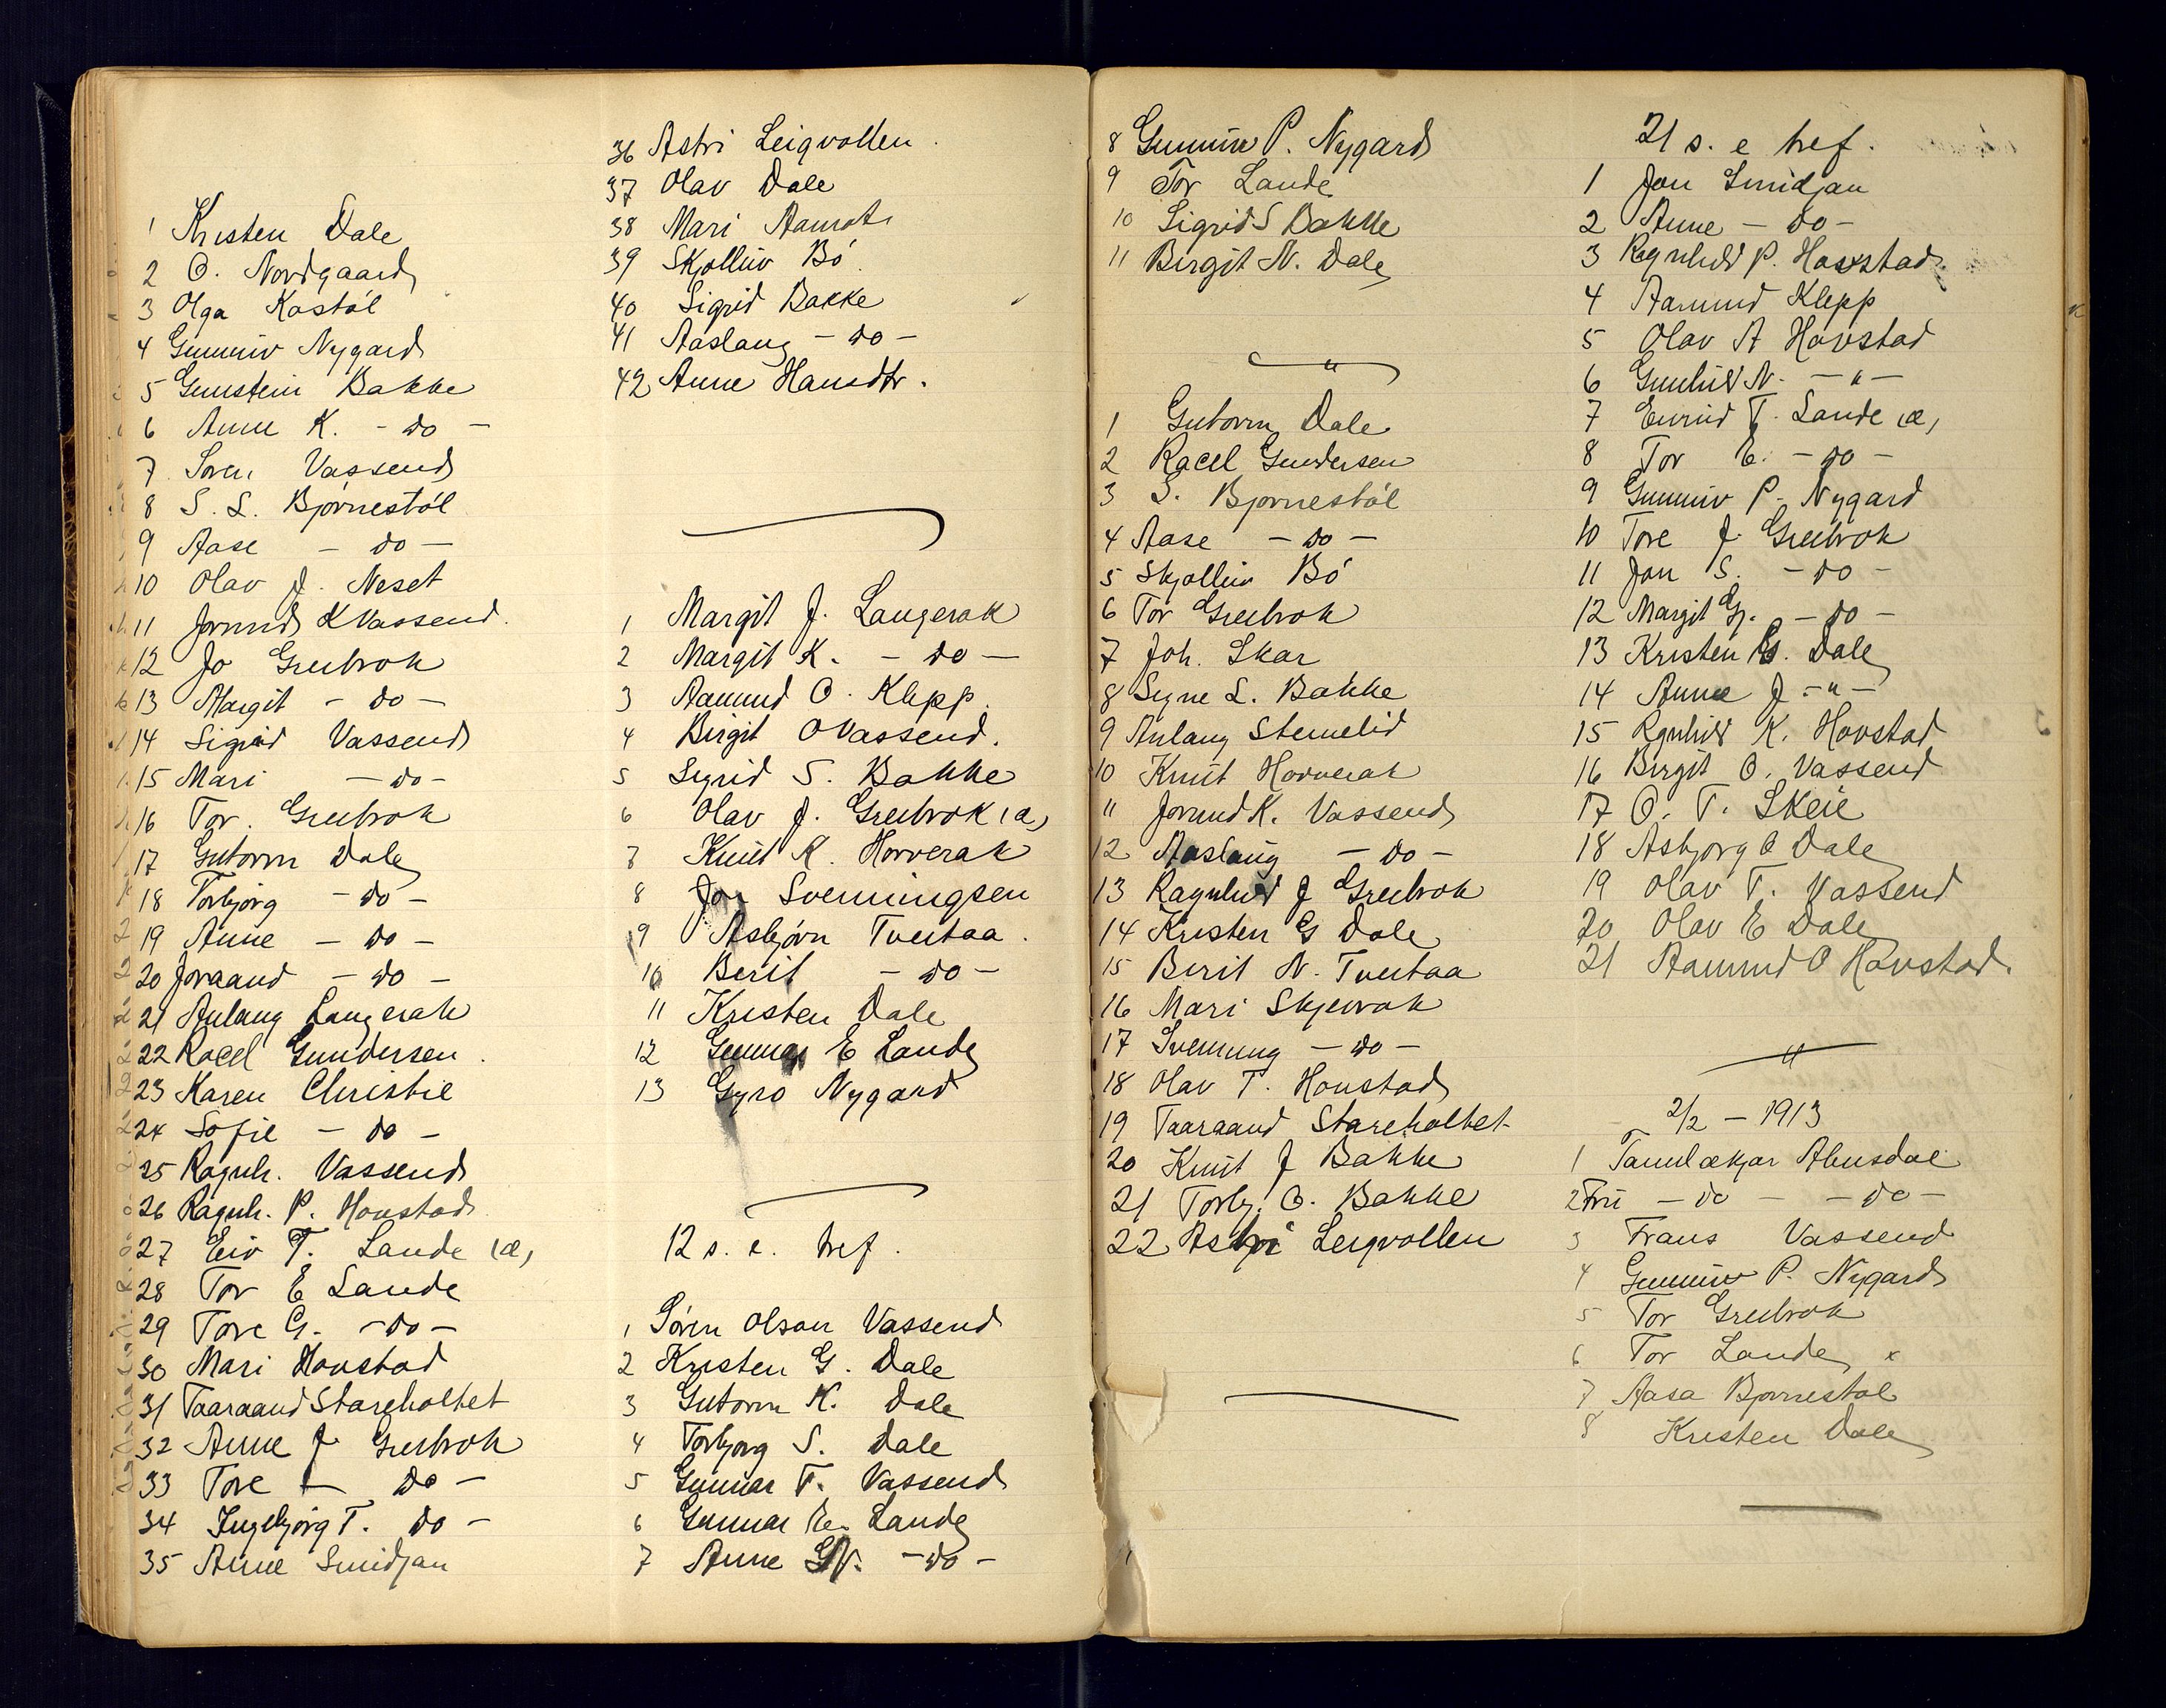 1 Kristen Dale
2 O. Nordgaard
3 Olga Kastøl
4 Gunnuv Nygard
5 Gunstein Bakke
6 Anne K. - do -
7 Søren Vassend
8 S. L. Bjørnestøl
9 Aase - do -
10 Olav J. Neset
11 Jorund K Vassend.
12 Jo Greibrok
13 Margit - do -
14 Sigrid Vassend
15 Mari - do -
16 Tor. Greibrok
17 Gutorm Dale
18 Torbjørg - do -
19 Anne - do -
20 Joraand - do -
21 Aslaug Langerak
22 Racel Gundersen.
23 Karen Christie
24 Sofie - do -
25 Ragnh. Vassend
26 Ragnh. P. Hovstad
27 Eiv T. Lande (æ)
28 Tor E Lande
29 Tore G. - do -
30 Mari Hovstad
31 Taaraand Stareholtet
32 Anne J Greibrok
33 Tore - do -
34 Ingebjørg T. do -
35 Anne Smidjan
36 Astri Leigvollen.
37 Olav Dale
38 Mari Aamot
39 Skjølluv Bø
40 Sigrid Bakke
41 Aaslaug - do -
42 Anne Hansdtr.
1 Margit J. Langerak
2 Margit K. - do -
3 Aamund O. Klepp.
4 Birgit O Vassend.
5 Sigrid S. Bakke
6 Olav J. Greibrok (æ)
7 Knut K. Horverak
8 Jon Svenningsen
9 Asbjørn Tveitaa.
10 Berit - do -
11 Kristen Dale
12 Gunnar E Lande
13 Gyro Nygard
12 s. e. tref.
1 Søren Olson Vassend
2 Kristen G. Dale
3 Gutorm K. Dale
4 Torbjørg S. Dale
5 Gunnar T. Vassend
6 Gunnar E. Lande
7 Anne - do -
8 Gunnuv P. Nygard
9 Tor Lande
10 Sigrid S Bakke
11 Birgit N. Dale
"
1 Gutorm Dale
2 Racel Gundersen
3 S. Bjørnestøl
4 Aase - do -
5 Skjølluv Bø
6 Tor Greibrok
7 Joh. Skar
8 Signe L. Bakke
9 Aslaug Stemelid
10 Knut Horverak
11 Jorund K. Vassend
12 Aaslaug - do -
13 Ragnhild J Greibrok
14 Kristen G Dale
15 Berit N. Tveitaa
16 Mari Skjevrak
17 Svenung - do -
18 Olav T. Hovstad
19 Taaraand Stareholtet
20 Knut J Bakke
21 Torbj. O. Bakke
22 Astri Leigvollen
21 s. e tref.
1 Jon Smidjan
2 Anne - do -
3 Ragnhild P. Hovstad
4 Aamund Klepp
5 Olav A Hovstad
6 Gunhild N. - " -
7 Eivind T. Lande (æ)
8 Tor E. - do -
9 Gunnuv P. Nygard
10 Tore J Greibrok
11 Jon S. - do -
12 Margit G. - do -
13 Kristen G. Dale
14 Anne J - " -
15 Rgnhild K. Hovstad
16 Birgit O. Vassend
17 O. T. Skeie
18 Asbjørg O Dale
19 Olav T. Vassend
20 Olav E Dale
21 Aamund O Hovstad
"
2/2 - 1913
1 Tannlækjar Abusdal
2 Fru - do - - do -
3 Frans Vassend
4 Gunnuv P. Nygard
5 Tor Greibrok
6 Tor Lande x
7 Aasa Bjørnestøl
8 Kristen Dale